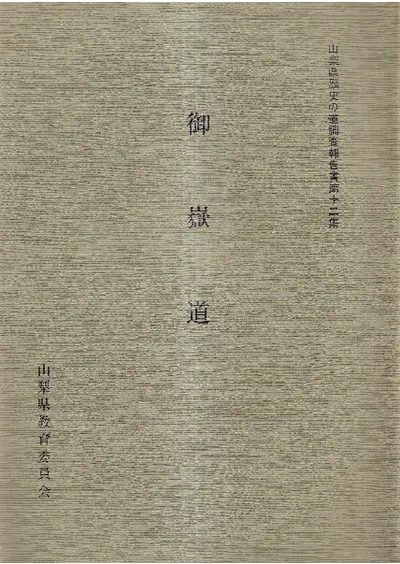 山梨県歴史の道調査報告書第十二集
御嶽道
山梨県教育委員会